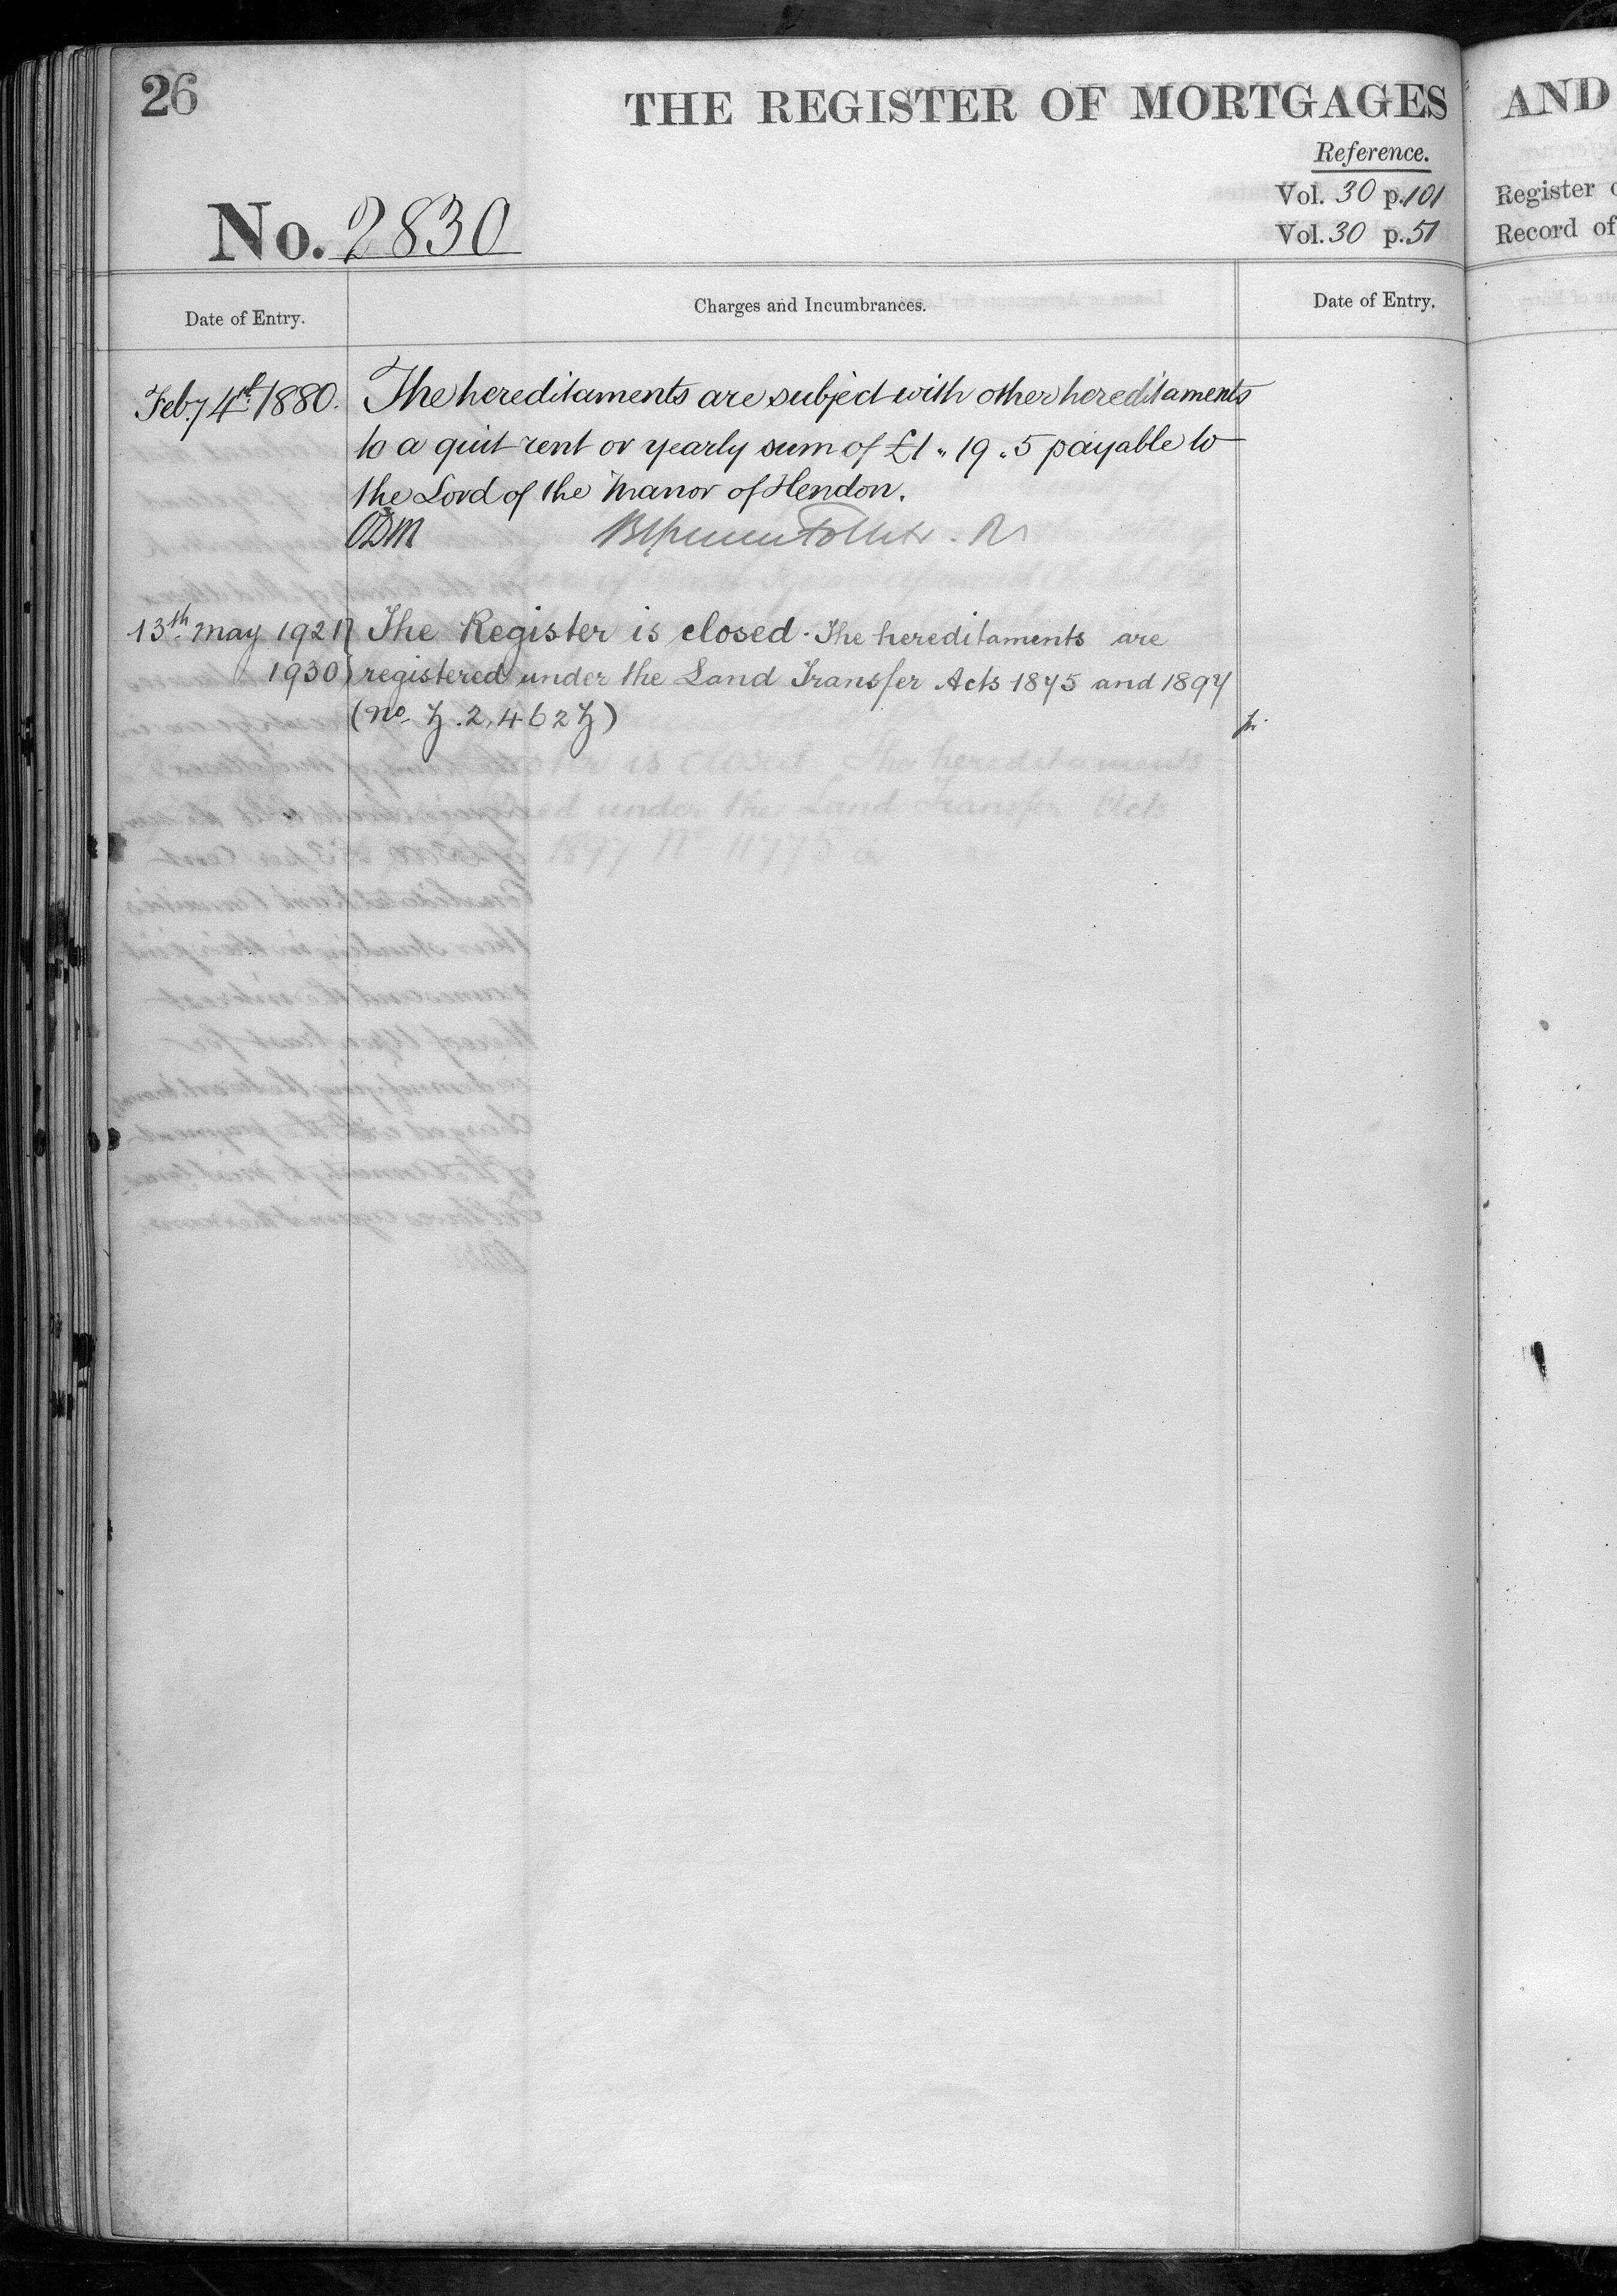 26
THE REGISTER OF MORTGAGES
AND
Reference.
Vol. 30 p. 101
Register
No. 2830
Vol. 30 p. 51
Record of
Date of Entry.
Charges and Incumbrances.
Date of Entry.
Feby 4th 1880.
The hereditaments are subject with other hereditaments
to a quit rent or yearly sum of £1 " 19 " 5 payable to
the Lord of the Manor of Hendon.
13th May 1921
The Register is closed. The hereditaments are
1930
registered under the Land Transfer Acts 1875 and 1897